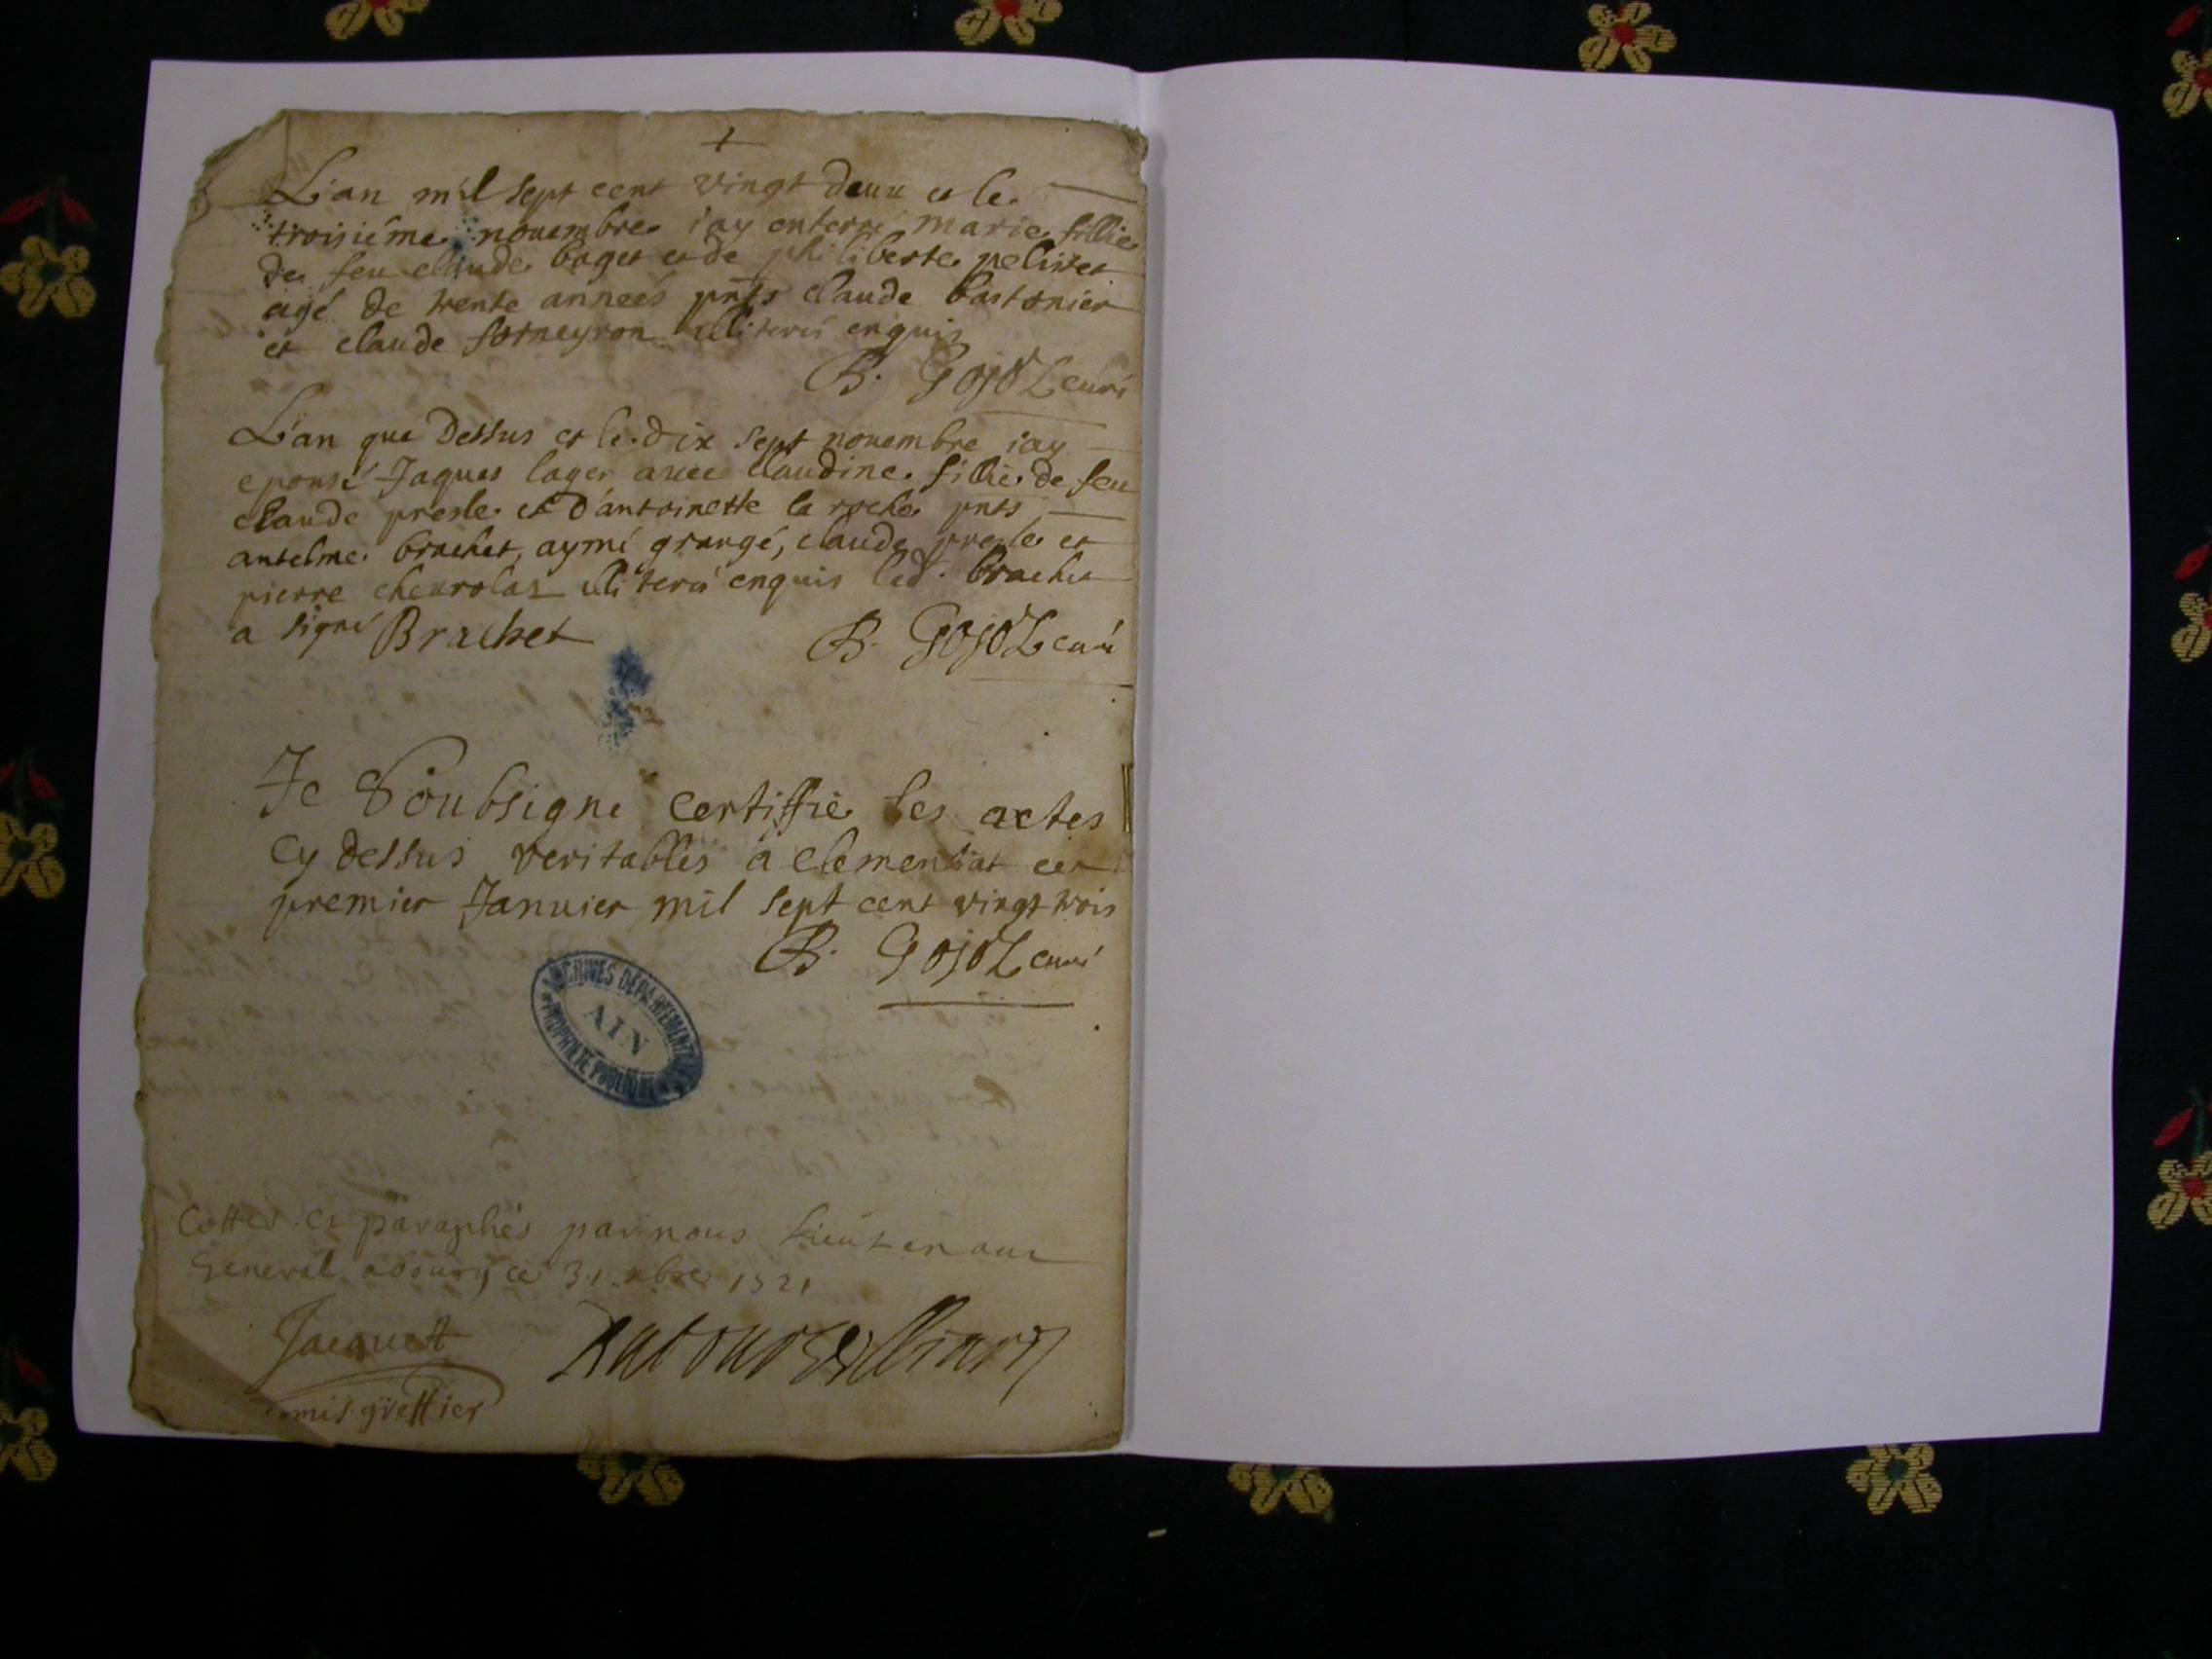 L'an mil sept cent vingt deux et le
troisiéme novembre iay enterré marie fillie
de feu claude baget et de philiberte pelisses
agé de trente anneés pnts claude bastonier
et claude forneyron illiterés enquis
B. Gojoz curé
L'an que dessus et le dix sept novembre iay
epousé Jaques lager avec claudine fillie de feu
claude presle et d'antoinette la roche pnts
antelme brachet, aymé grangé, claude presle et
pierre chevrolas illiterés enquis led. brachet
a signé Brachet
B. Gojoz curé
Je Soubsigné certiffie les actes
cy dessus veritables a clemensiat ce
premier Janvier mil sept cent vingt trois
B. Gojoz curé
ARCHIVES DEPARTEMENTALES
AIN
PROPRIETE PUBLIQUE
Cottés et paraphés par nous Lieutenant
General a bourg ce 31 xbre 1721
Jacquet
comis greffier